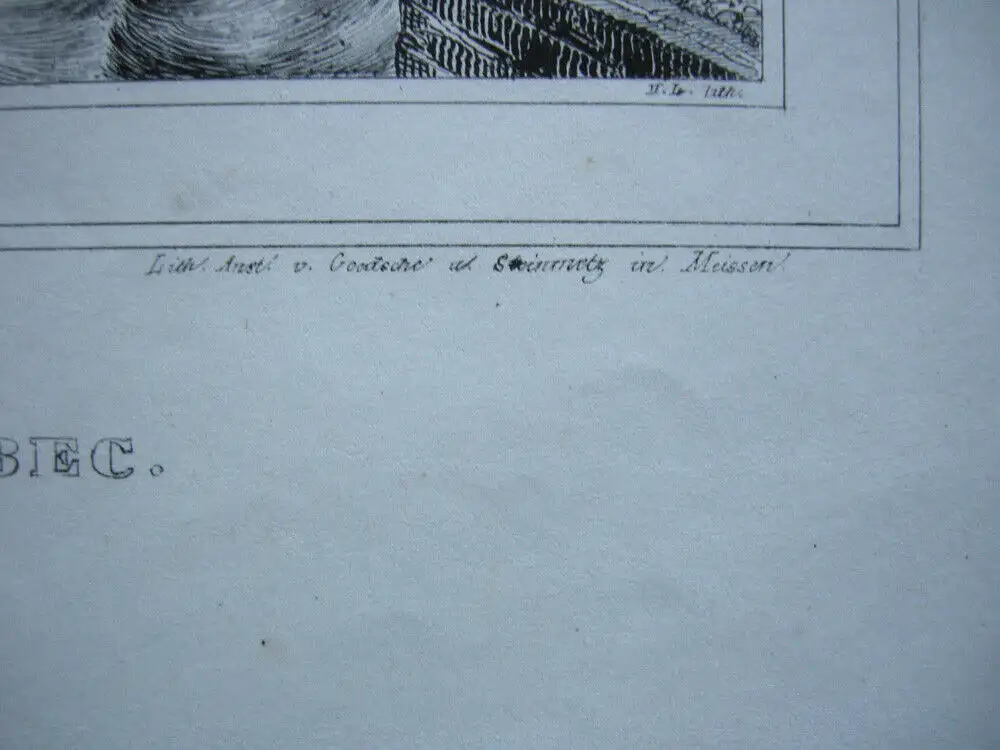 H. Lr. lith.
Lith. Anst. v. Goedsche u. Steinmetz in Meissen.
BEC.